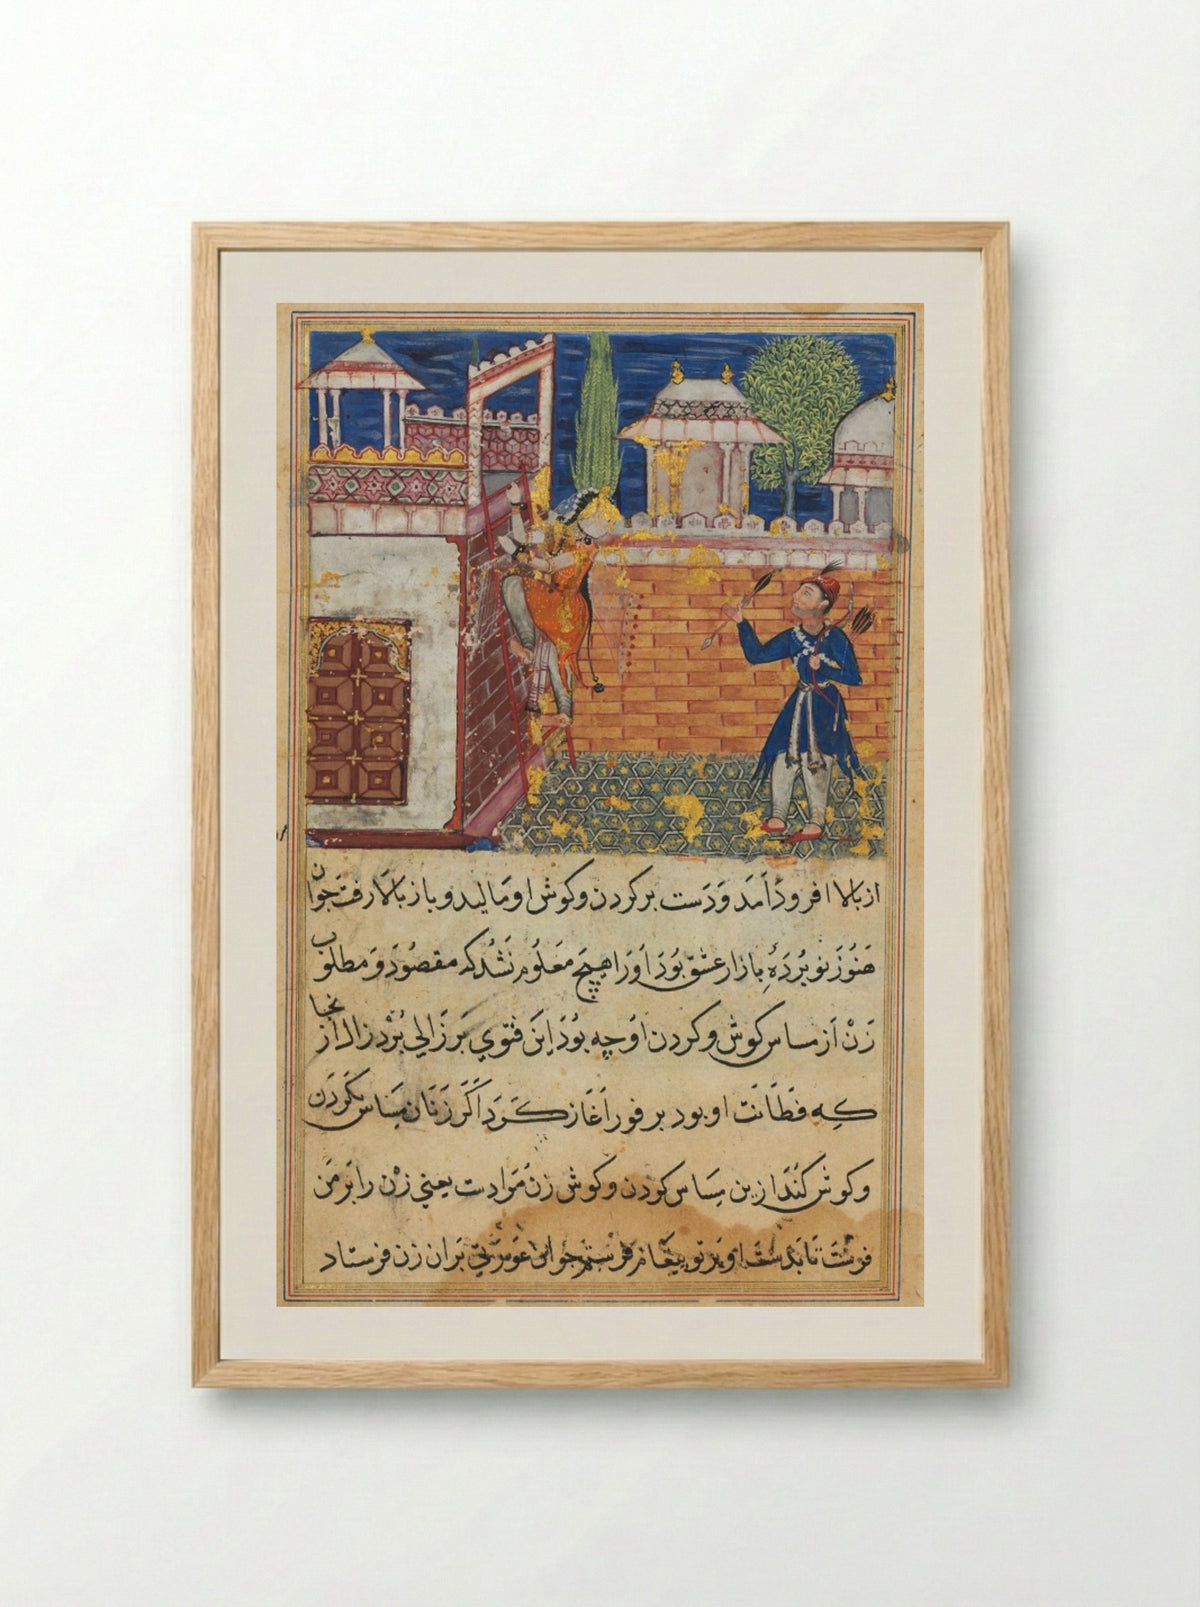 از بالا فرود آمد و دست بر کردن و کوش او مالید و باز بالا رفت جوان
هنوز نو بردهٔ بازار عشق بود اورا هیچ معلوم نشد که مقصود و مطلوب
زن از مساس کوش و کردن او چه بود این فتوی بر زالی برد زال از نجا
که فطانت او بود بر فور آغاز کرد اگر زنان مساس کردن
و کوش کنند ازین مساس کردن و کوش زن مراد ست یعنی زن را بر من
فرست تا بدست او بر تو پیغام فرستم جوان عورتی بران زن فرستاد